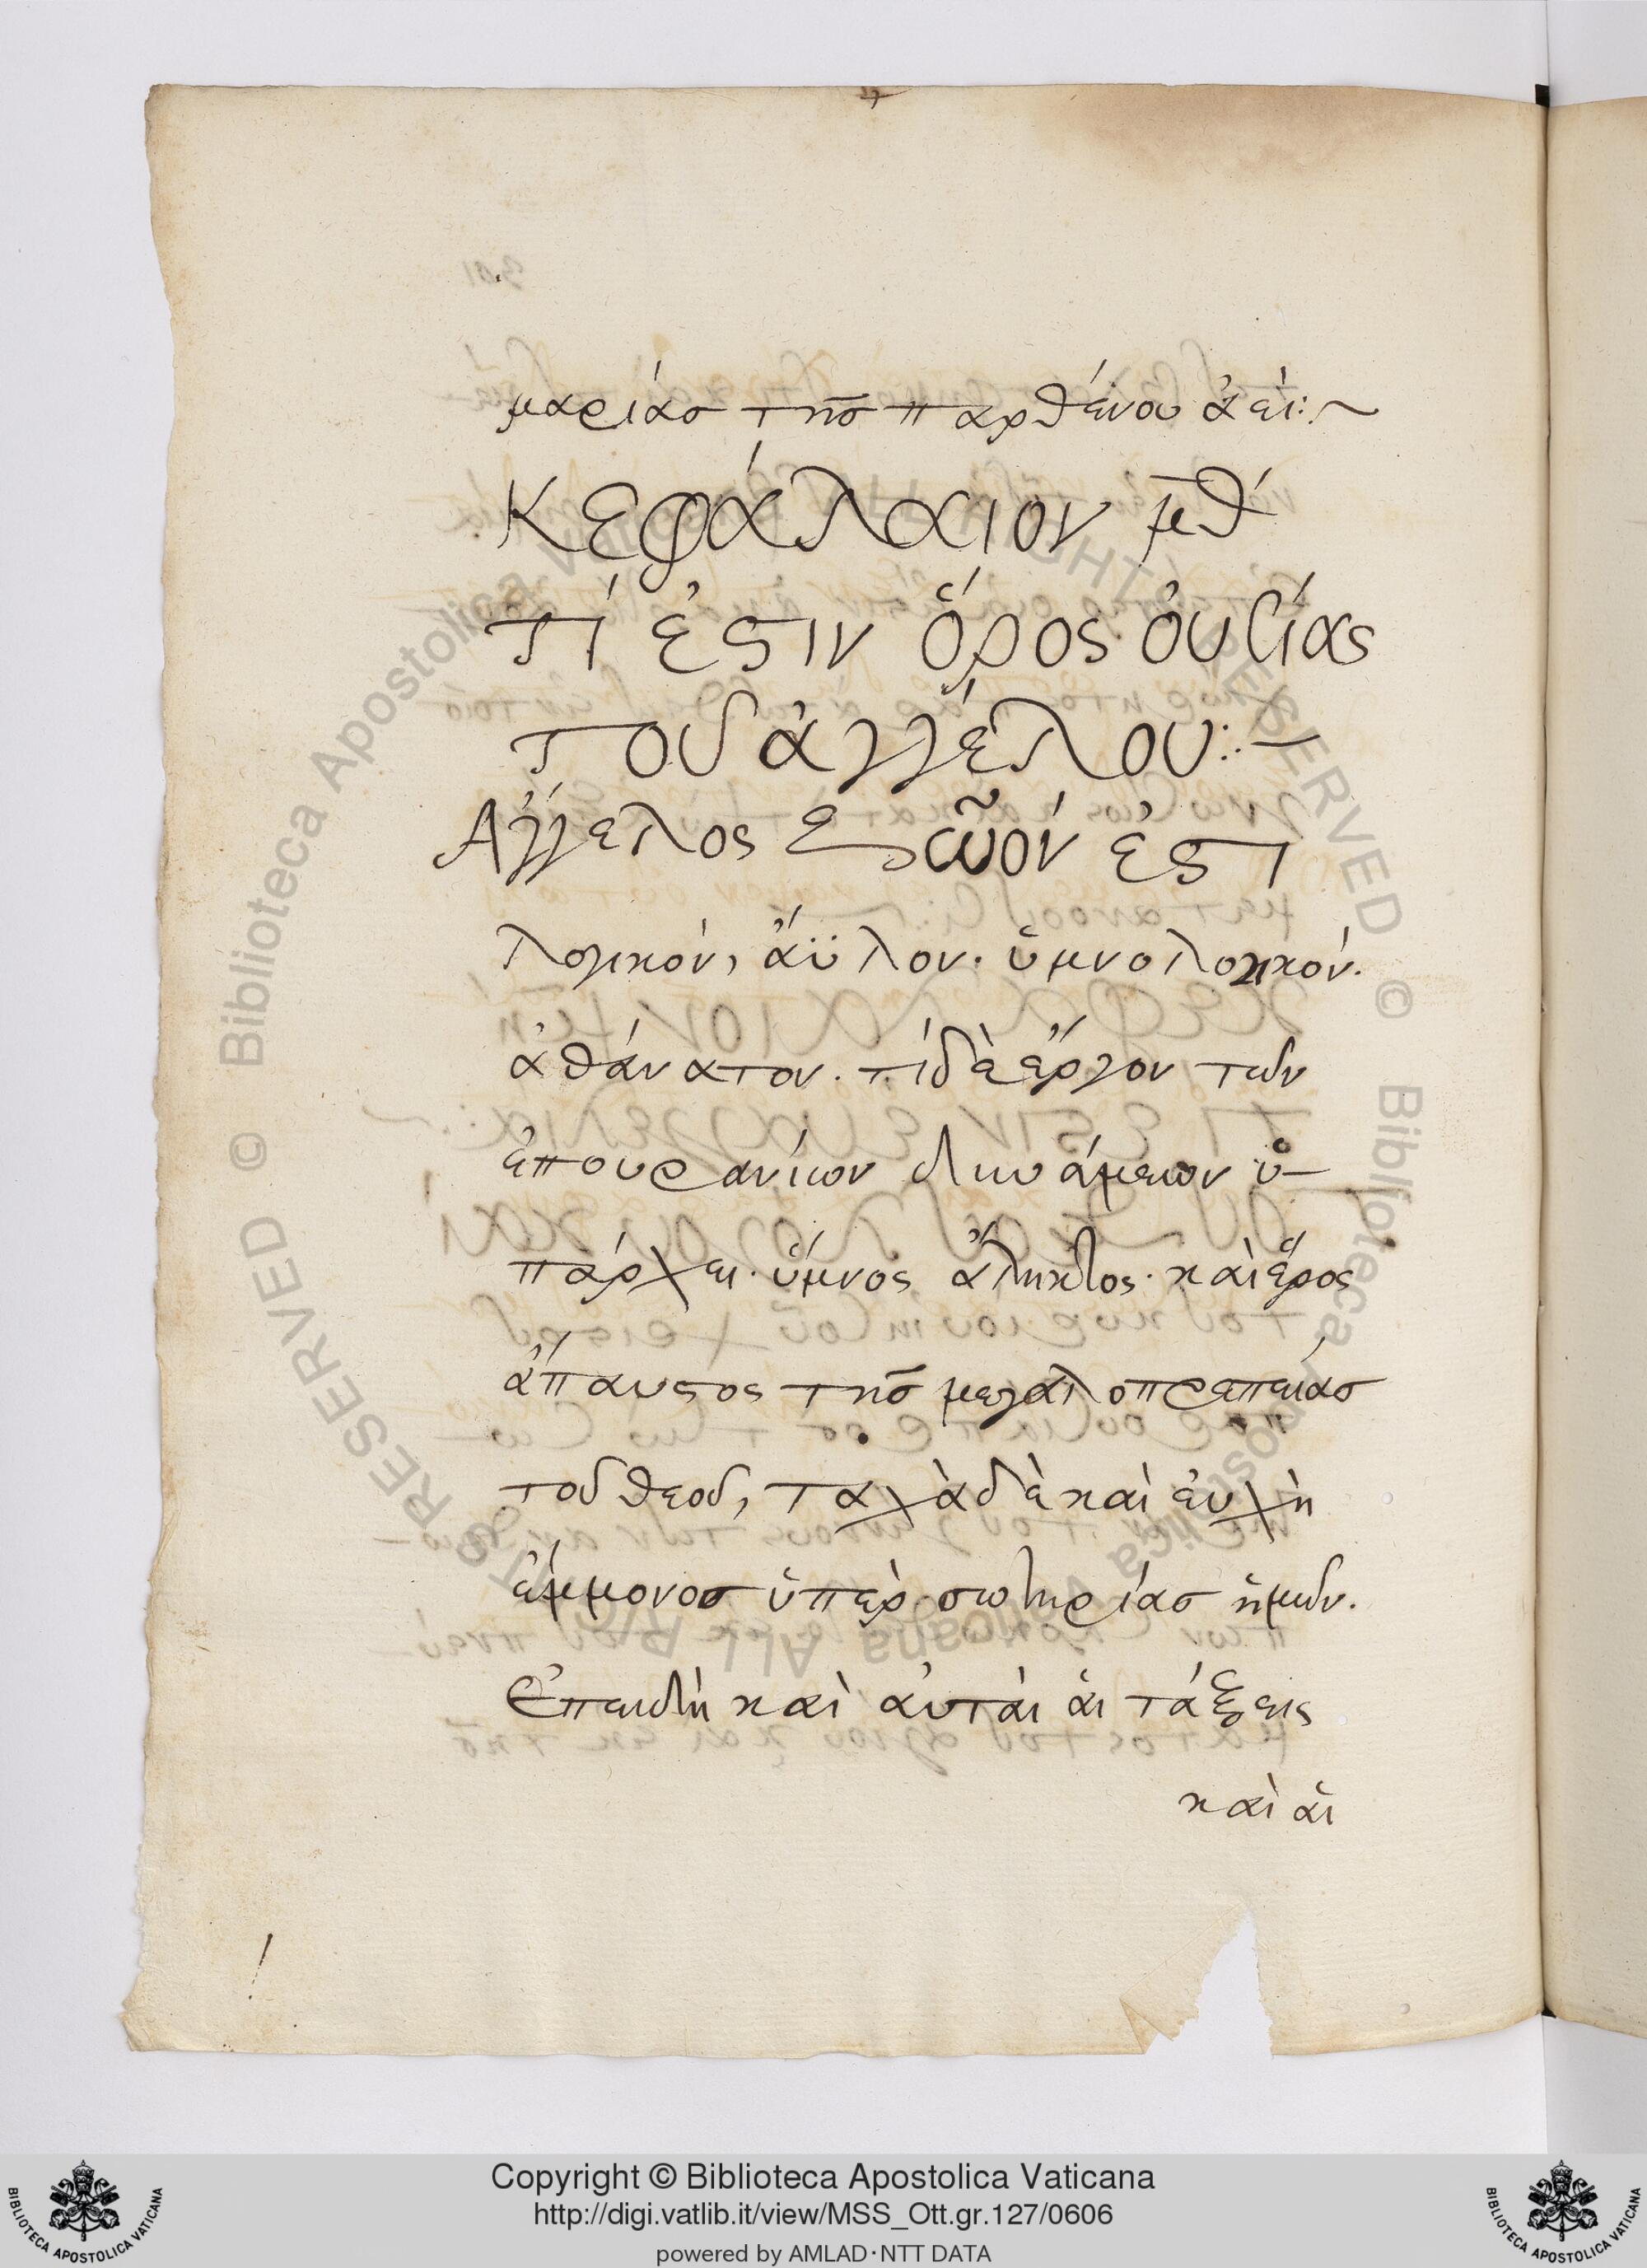 μαρίασ τῆσ παρθένου ἀεί:~
Κεφάλαιον μθ́
τί ἐςιν ὅρος οὐσίας
τοῦ ἀγγέλου:~
Ἄγγελος ζῶόν ἐςι
λογικόν, ἄϋλον. ὑμνολογικόν.
ἀθάνατον. τί δὲ ἔργον τῶν
ἐπουρανίων δυνάμεων ὑ-
πάρχει. ὕμνος ἄληκτος. καὶ ἔρος
ἄπαυςος τῆσ μεγαλοπρεπείασ
τοῦ θεοῦ, ταχὰ δὲ καὶ εὐχὴ
ἔμμονοσ ὑπὲρ σωτηρίασ ἡμῶν.
Ἐπειδὴ καὶ αὐταὶ ἁι τάξεις
καὶ ἁι
Copyright © Biblioteca Apostolica Vaticana
http://digi.vatlib.it/view/MSS_Ott.gr.127/0606
powered by AMLAD·NTT DATA
BIBLIOTECA APOSTOLICA VATICANA
BIBLIOTECA APOSTOLICA VATICANA